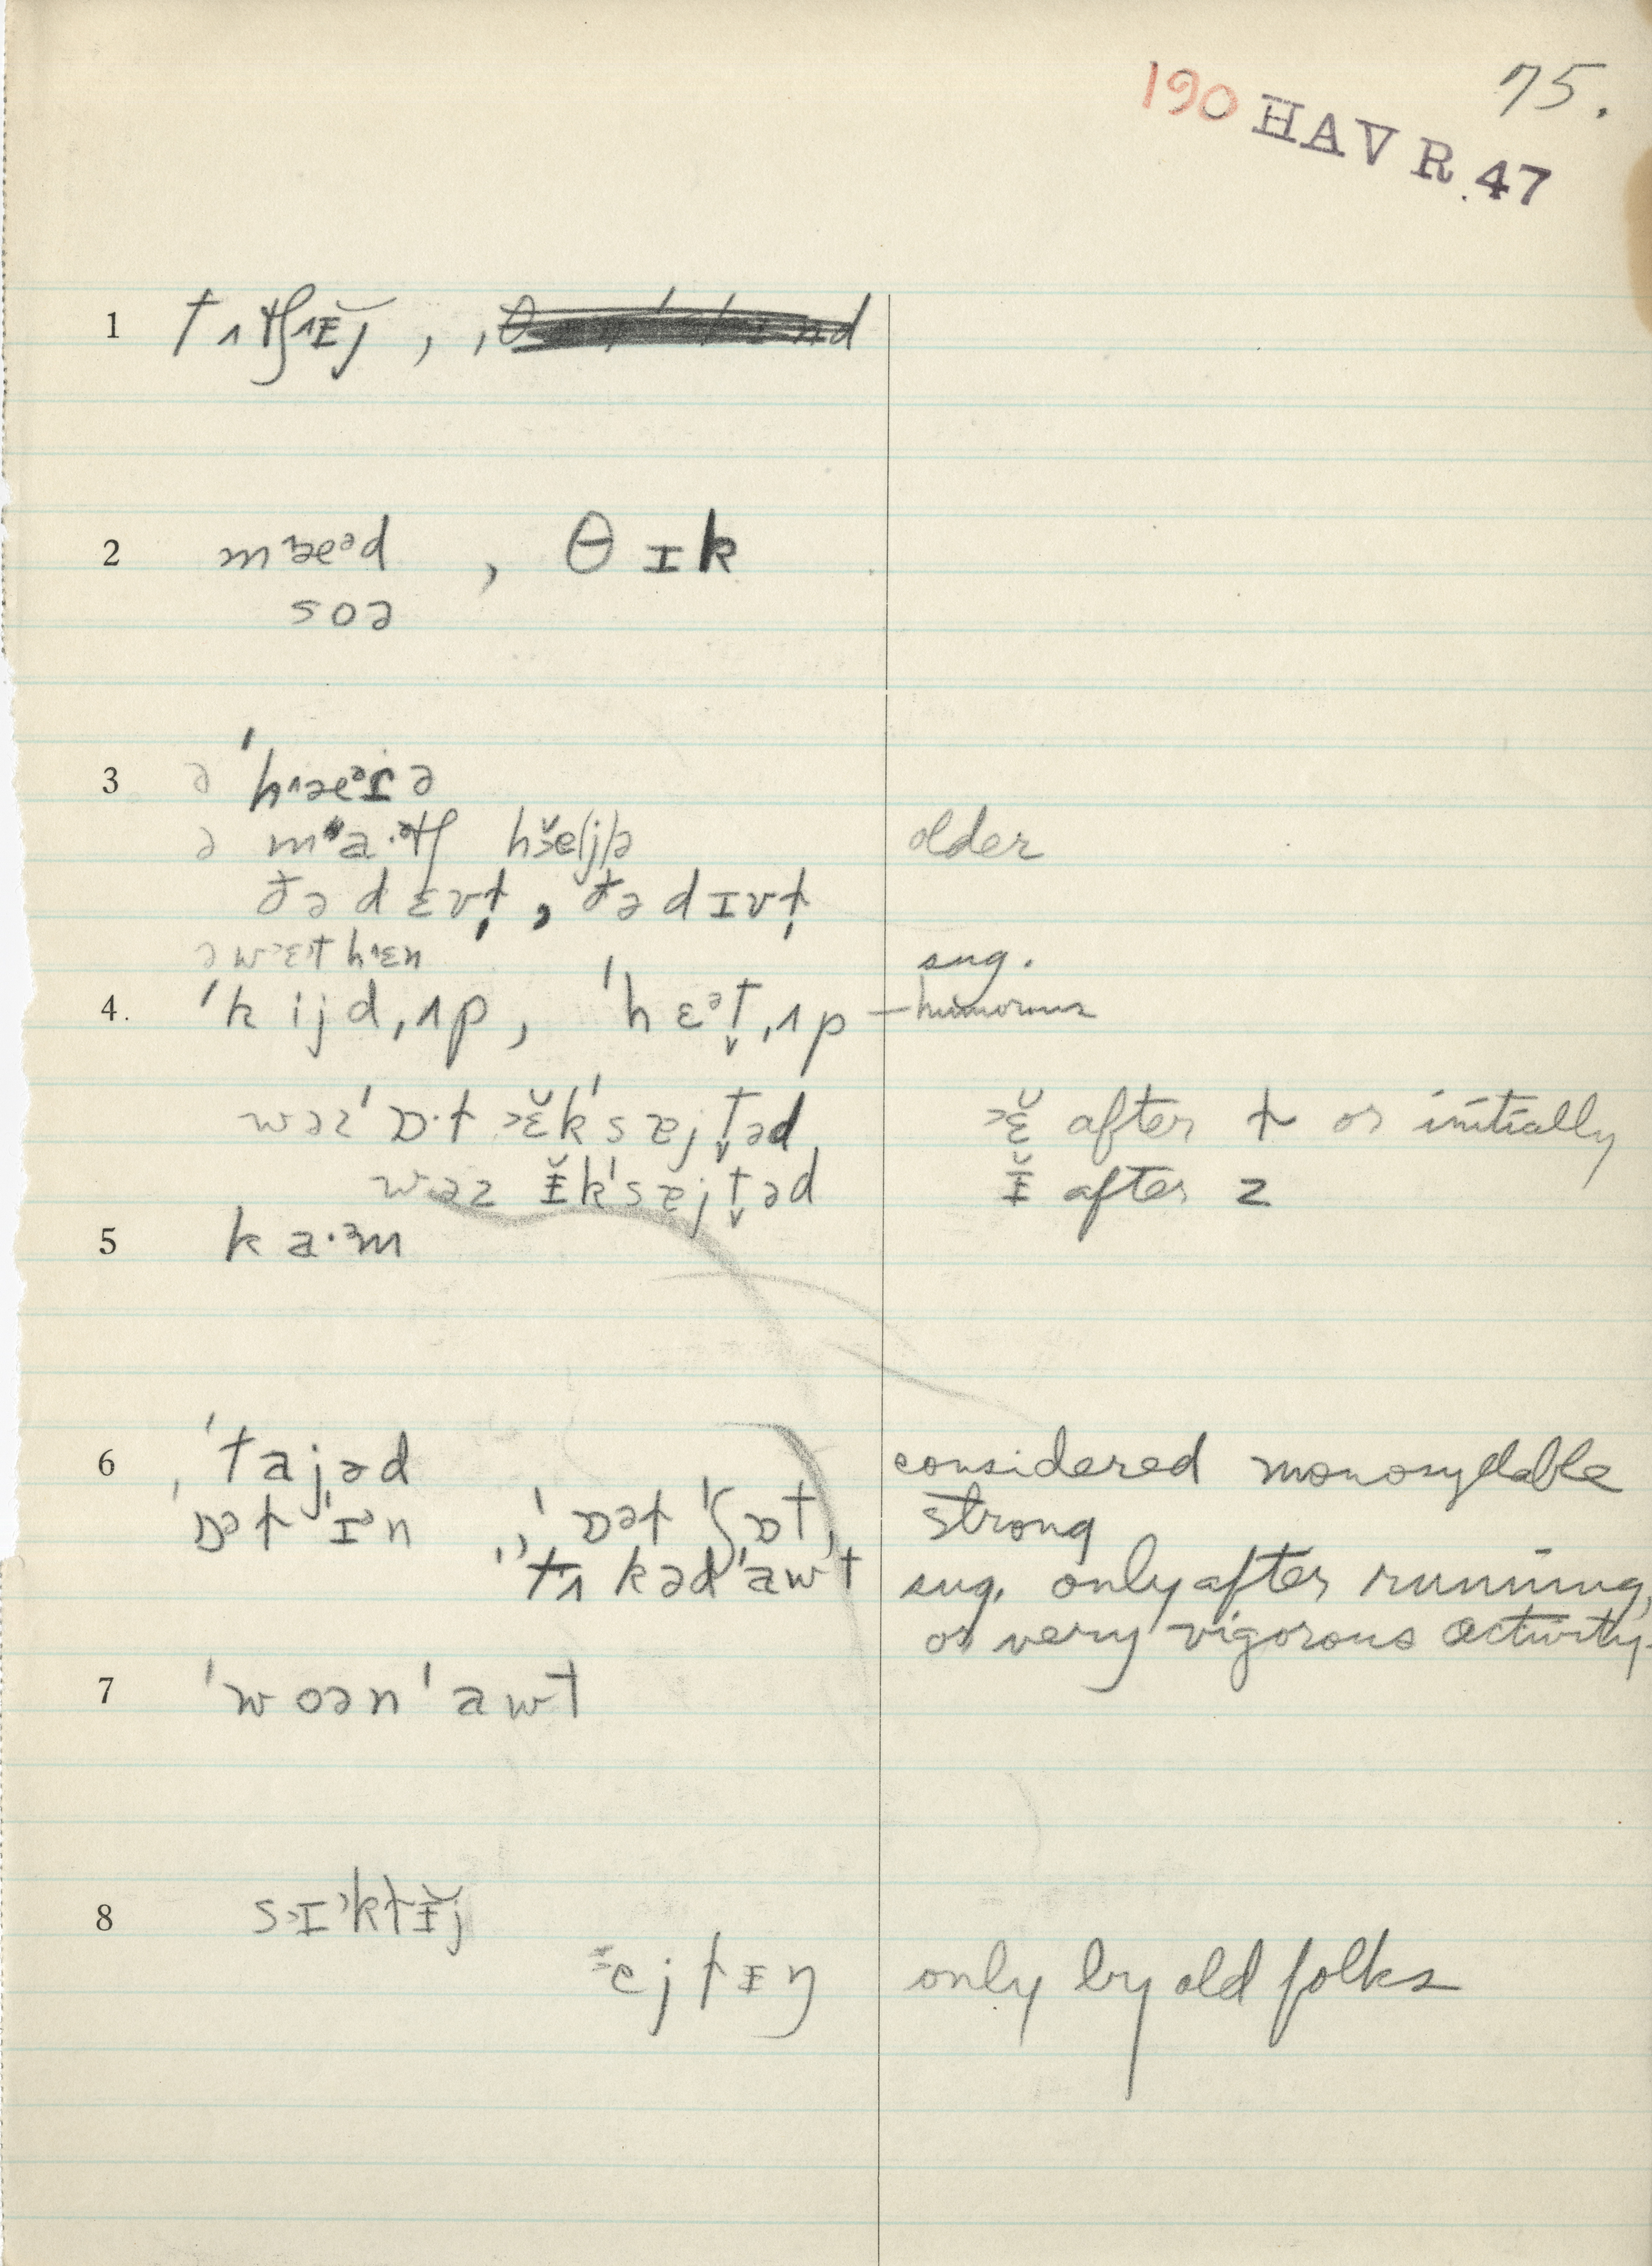 75.
190 HAV R. 47
1 tʌtʃɪ̆j ,
2 mæᵊd , θɪk
soə
3 ə 'hæᵊɪə
ə older
ðə dɛvt̬ , ðə dɪvt̬
sug.
4. 'kijd,ʌp, 'hɛᵊt̬,ʌp – humorous
wəz'ɒ·ɫ ɛ̆k'sɐjt̬əd ɛ̆ after ɫ or initially
wəz ɪ̆k'sɐjt̬əd ɪ̆ after z
5 ka·ᵊm
6 'tajəd considered monosyllable
'ɒᵊɫ 'ɪᵊn , 'ɒəɫ 'ʃɒt, strong
'tʌkəd'awt sug. only after running,
or very vigorous activity.
7 'woən'awt
8 sɪ'kɫɪ̆j
ejɫɪŋ only by old folks